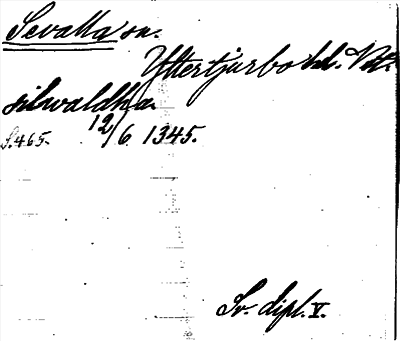 Sevalla sn.
Yttertjurbo hd. Vtl.
silwaldha.
S. 465. 12/6 1345.
Sv. dipl. V.